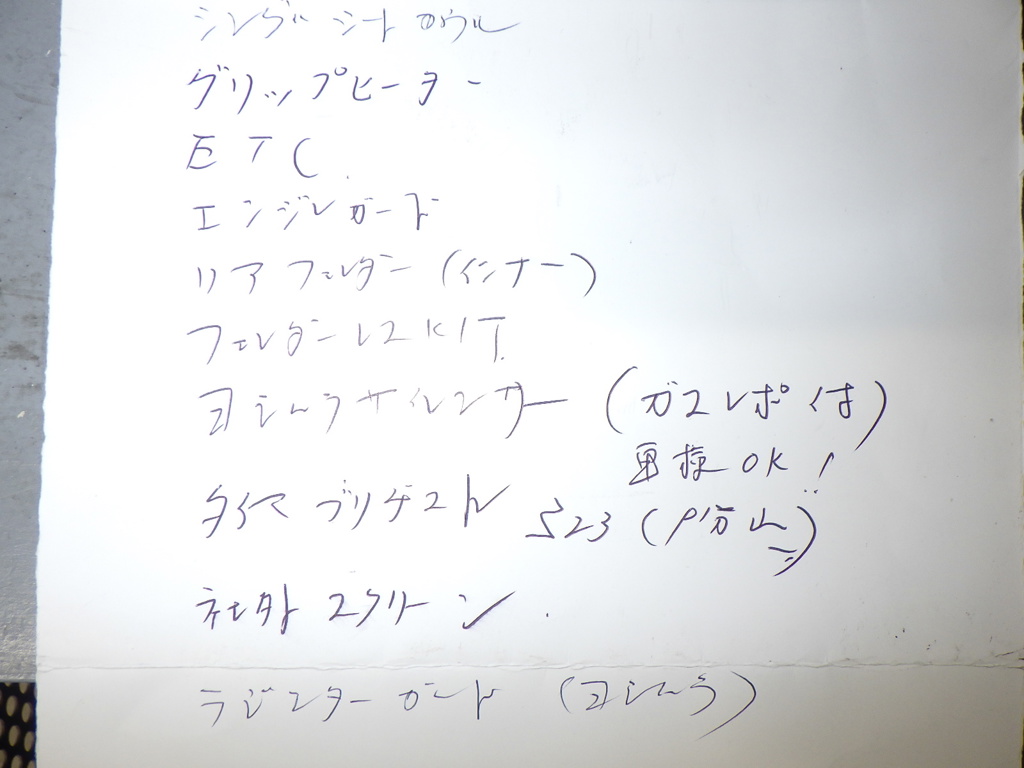 シングルシートカウル
グリップヒーター
ETC
エンジンガード
リアフェンダー (インナー)
フェンダーレスKIT
ヨシムラサイレンサー (ガスレポ付)
車検OK!
タイヤ ブリヂストン S23 (9分山)
社外スクリーン
ラジエターガード (ヨシムラ)